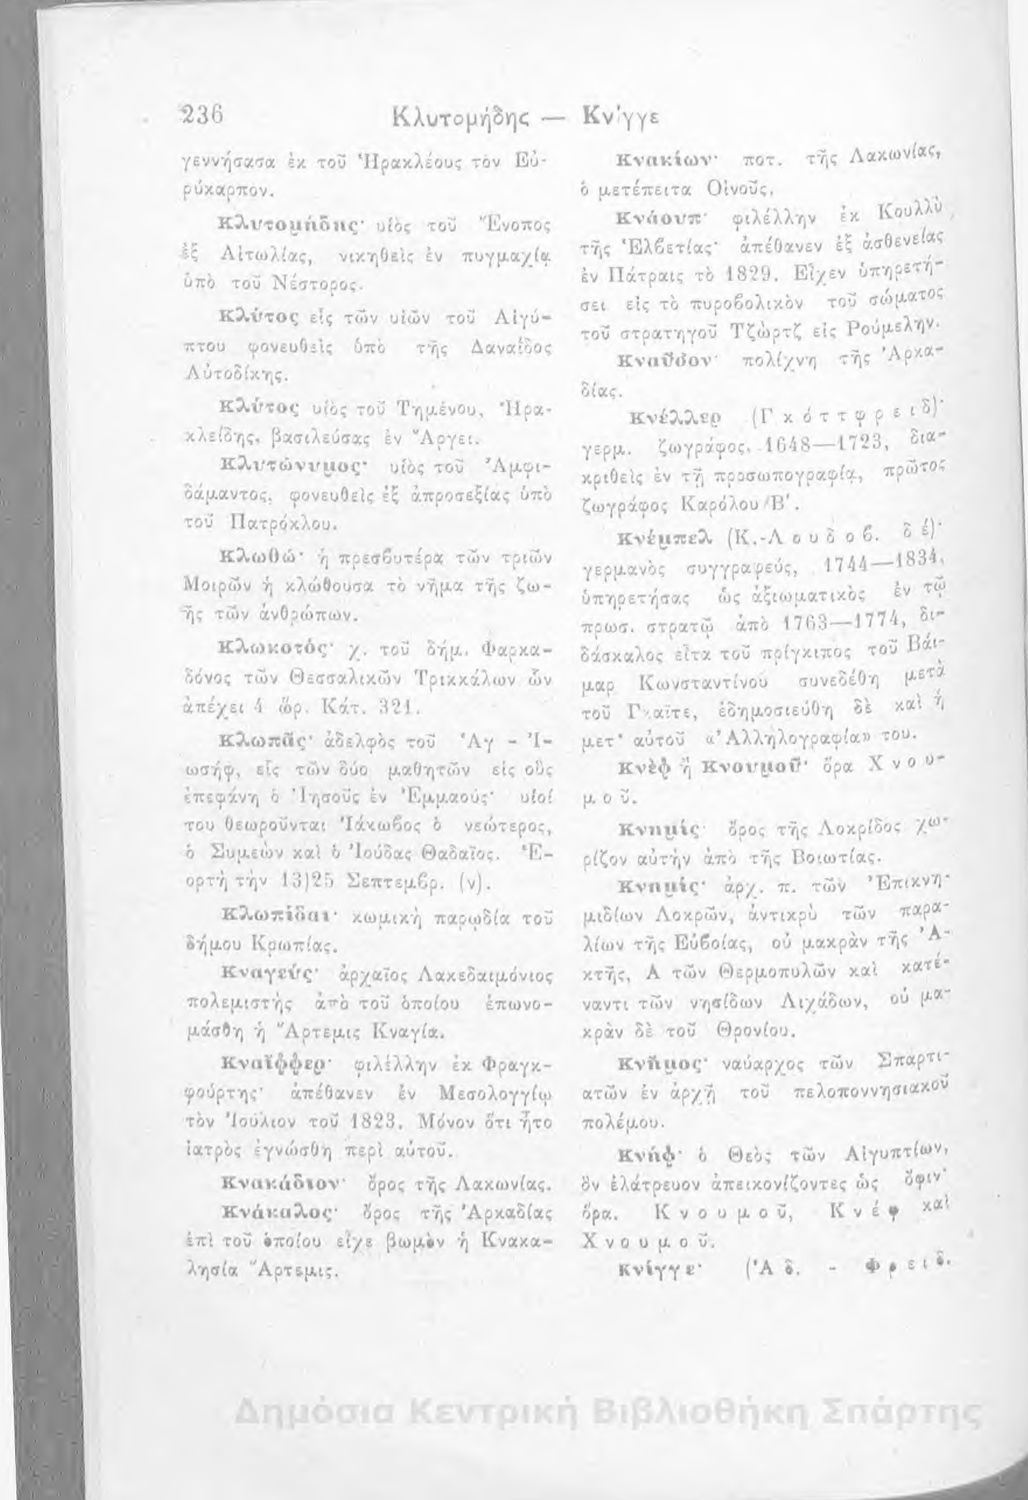 236
Κλυτομήδης — Κνίγγε
γεννήσασα ἐκ τοῦ Ἡρακλέους τὸν Εὐ-
ρύκαρπον.
Κλυτομήδης· υἱὸς τοῦ Ἔνοπος
ἐξ Αἰτωλίας, νικηθεὶς ἐν πυγμαχίᾳ
ὑπὸ τοῦ Νέστορος.
Κλύτος εἷς τῶν υἱῶν τοῦ Αἰγύ-
πτου φονευθεὶς ὑπὸ τῆς Δαναΐδος
Αὐτοδίκης.
Κλύτος υἱὸς τοῦ Τημένου, Ἡρα-
κλείδης, βασιλεύσας ἐν Ἄργει.
Κλυτώνυμος· υἱὸς τοῦ Ἀμφι-
δάμαντος, φονευθεὶς ἐξ ἀπροσεξίας ὑπὸ
τοῦ Πατρόκλου.
Κλωθώ· ἡ πρεσβυτέρα τῶν τριῶν
Μοιρῶν ἡ κλώθουσα τὸ νῆμα τῆς ζω-
ῆς τῶν ἀνθρώπων.
Κλωκοτός· χ. τοῦ δήμ. Φαρκα-
δόνος τῶν Θεσσαλικῶν Τρικκάλων ὧν
ἀπέχει 4 ὥρ. Κάτ. 321.
Κλωπᾶς· ἀδελφὸς τοῦ Ἁγ - Ἰ-
ωσήφ, εἷς τῶν δύο μαθητῶν εἰς οὓς
ἐπεφάνη ὁ Ἰησοῦς ἐν Ἐμμαούς· υἱοί
του θεωροῦνται Ἰάκωβος ὁ νεώτερος,
ὁ Συμεὼν καὶ ὁ Ἰούδας Θαδαῖος. Ἑ-
ορτὴ τὴν 13)25 Σεπτεμβρ. (ν).
Κλωπίδαι· κωμικὴ παρῳδία τοῦ
δήμου Κρωπίας.
Κναγεύς· ἀρχαῖος Λακεδαιμόνιος
πολεμιστὴς ἀπὸ τοῦ ὁποίου ἐπωνο-
μάσθη ἡ Ἄρτεμις Κναγία.
Κναΐφφερ· φιλέλλην ἐκ Φραγκ-
φούρτης· ἀπέθανεν ἐν Μεσολογγίῳ
τὸν Ἰούλιον τοῦ 1823. Μόνον ὅτι ἦτο
ἰατρὸς ἐγνώσθη περὶ αὐτοῦ.
Κνακάδιον· ὄρος τῆς Λακωνίας.
Κνάκαλος· ὄρος τῆς Ἀρκαδίας
ἐπὶ τοῦ ὁποίου εἶχε βωμὸν ἡ Κνακα-
λησία Ἄρτεμις.
Κνακίων· ποτ. τῆς Λακωνίας,
ὁ μετέπειτα Οἰνοῦς.
Κνάουπ· φιλέλλην ἐκ Κουλλὺ
τῆς Ἑλβετίας· ἀπέθανεν ἐξ ἀσθενείας
ἐν Πάτραις τὸ 1829. Εἶχεν ὑπηρετή-
σει εἰς τὸ πυροβολικὸν τοῦ σώματος
τοῦ στρατηγοῦ Τζὼρτζ εἰς Ρούμελην.
Κναῦσον· πολίχνη τῆς Ἀρκα-
δίας.
Κνέλλερ (Γκόττφρειδ)·
γερμ. ζωγράφος, 1648—1723, δια-
κριθεὶς ἐν τῇ προσωπογραφίᾳ, πρῶτος
ζωγράφος Καρόλου Β΄.
Κνέμπελ (Κ.-Λουδοβ. δέ)·
γερμανὸς συγγραφεύς, 1744—1834,
ὑπηρετήσας ὡς ἀξιωματικὸς ἐν τῷ
πρωσ. στρατῷ ἀπὸ 1763—1774, δι-
δάσκαλος εἶτα τοῦ πρίγκιπος τοῦ Βάι-
μαρ Κωνσταντίνου συνεδέθη μετὰ
τοῦ Γκαῖτε, ἐδημοσιεύθη δὲ καὶ ἡ
μετ' αὐτοῦ «Ἀλληλογραφία» του.
Κνὲφ ἢ Κνουμοῦ· ὅρα Χνου-
μοῦ.
Κνημίς· ὄρος τῆς Λοκρίδος χω-
ρίζον αὐτὴν ἀπὸ τῆς Βοιωτίας.
Κνημίς· ἀρχ. π. τῶν Ἐπικνη-
μιδίων Λοκρῶν, ἀντικρὺ τῶν παρα-
λίων τῆς Εὐβοίας, οὐ μακρὰν τῆς Ἀ-
κτῆς, Α τῶν Θερμοπυλῶν καὶ κατέ-
ναντι τῶν νησίδων Λιχάδων, οὐ μα-
κρὰν δὲ τοῦ Θρονίου.
Κνῆμος· ναύαρχος τῶν Σπαρτι-
ατῶν ἐν ἀρχῇ τοῦ πελοποννησιακοῦ
πολέμου.
Κνήφ· ὁ Θεὸς τῶν Αἰγυπτίων,
ὃν ἐλάτρευον ἀπεικονίζοντες ὡς ὄφιν·
ὅρα. Κνουμοῦ, Κνέφ καὶ
Χνουμοῦ.
Κνίγγε· (Ἀδ. - Φρειδ.
Δημόσια Κεντρική Βιβλιοθήκη Σπάρτης